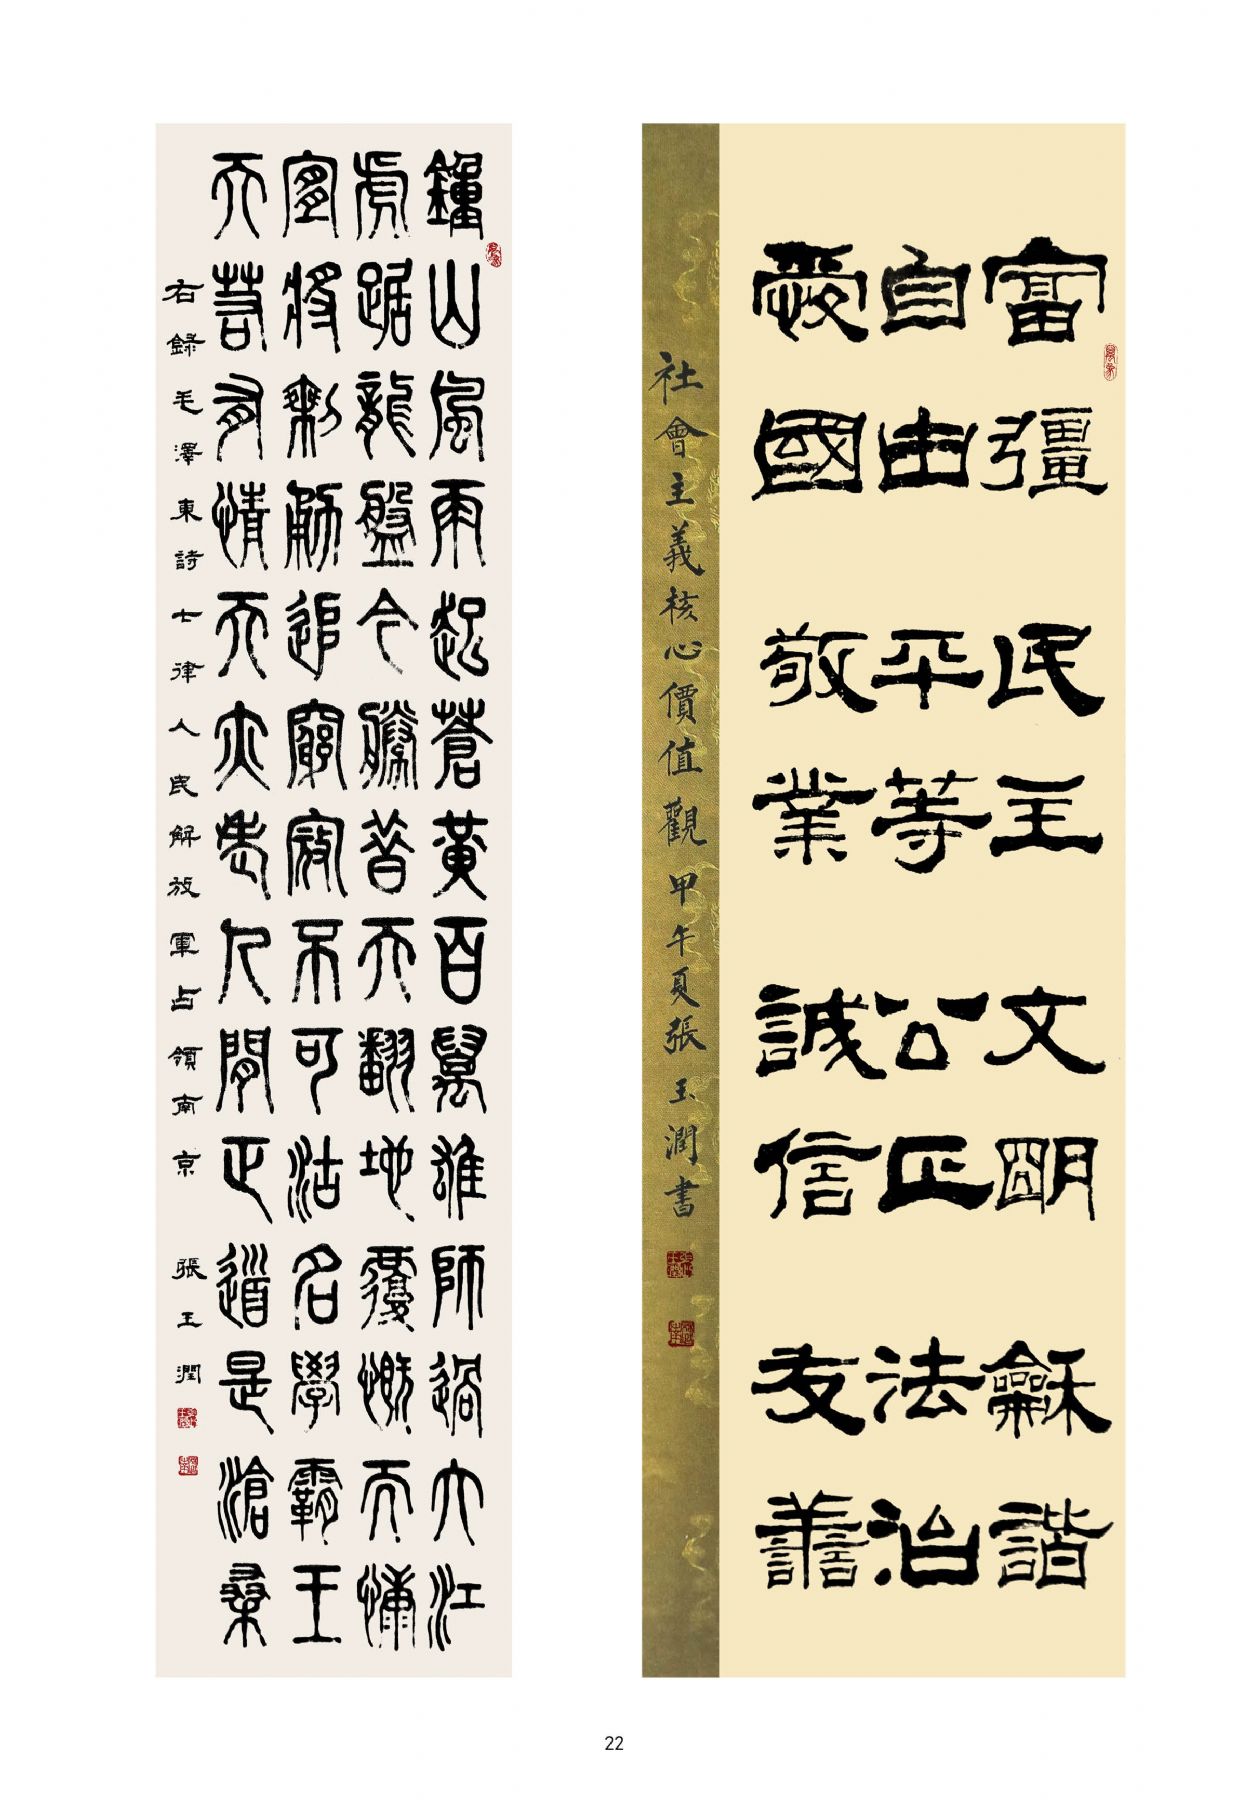 富彊民主文明龢諧
自由平等公正法治
愛國敬業誠信友善
社會主義核心價值觀甲午夏張玉潤書
鐘山風雨起蒼黃百萬雄師過大江
虎踞龍盤今勝昔天翻地覆慨而慷
宜將剩勇追窮寇不可沽名學霸王
天若有情天亦老人間正道是滄桑
右錄毛澤東詩七律人民解放軍占領南京 張玉潤
22